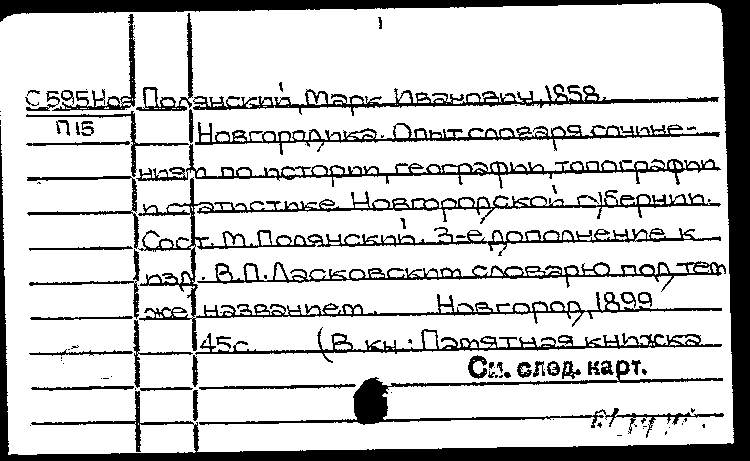 С595Нов Полянский, Марк Иванович, 1858.
П15 Новгородика. Опыт словаря сочине-
ниям по истории, географии, топографии
и статистике Новгородской губернии.
Сост. М. Полянский. 3-е дополнение к
изд. В.П. Ласковским словарю под тем
же названием. Новгород, 1899
45с. (В кн.: Памятная книжка
См. след. карт.